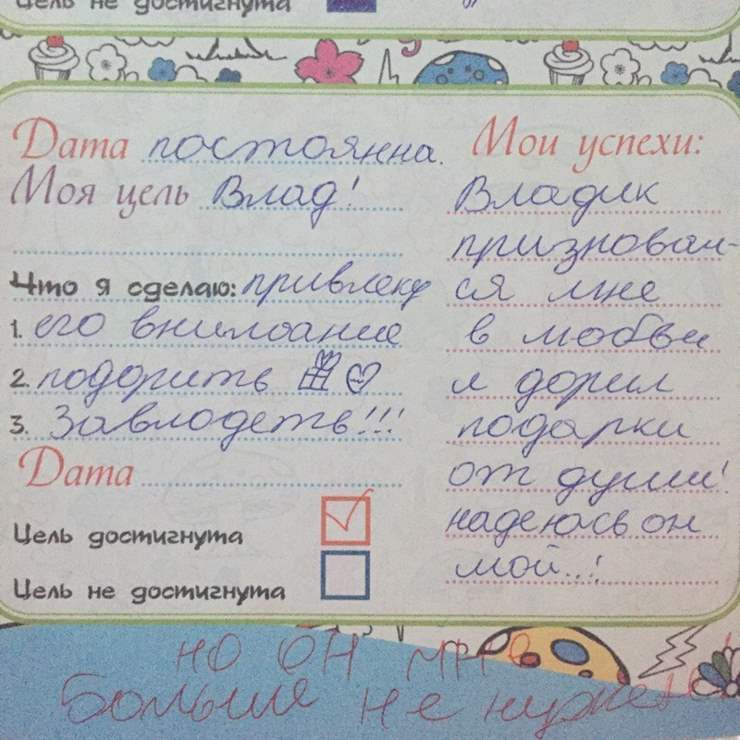 Цель не достигнута
Дата постоянна.
Моя цель Влад!
Что я сделаю: привлеку
1. его внимоание
2. подорить
3. Завлодеть!!!
Дата
Цель достигнута
Цель не достигнута
Мои успехи:
Владик
признован-
ся мне
в любви
и дорил
подарки
от души!
надеюсь он
мой...!
но он мне
больше не нужен!